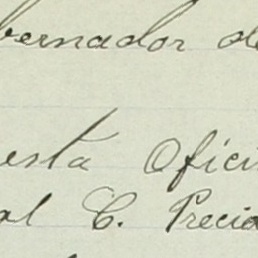 bernador de
esta Ofici
al C. Precia